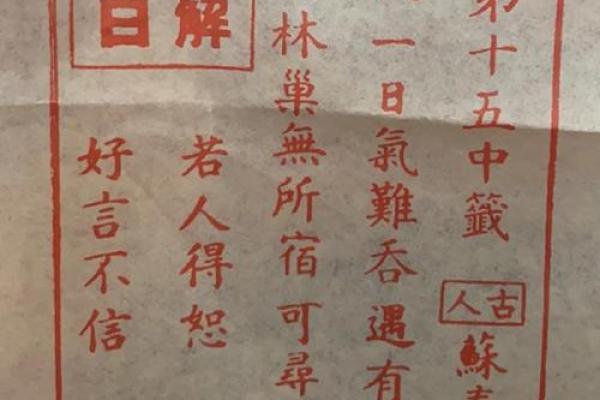 第十五中籤
古人
蘇
一日氣難吞遇有
林巢無所宿可尋
解曰
若人得恕
好言不信